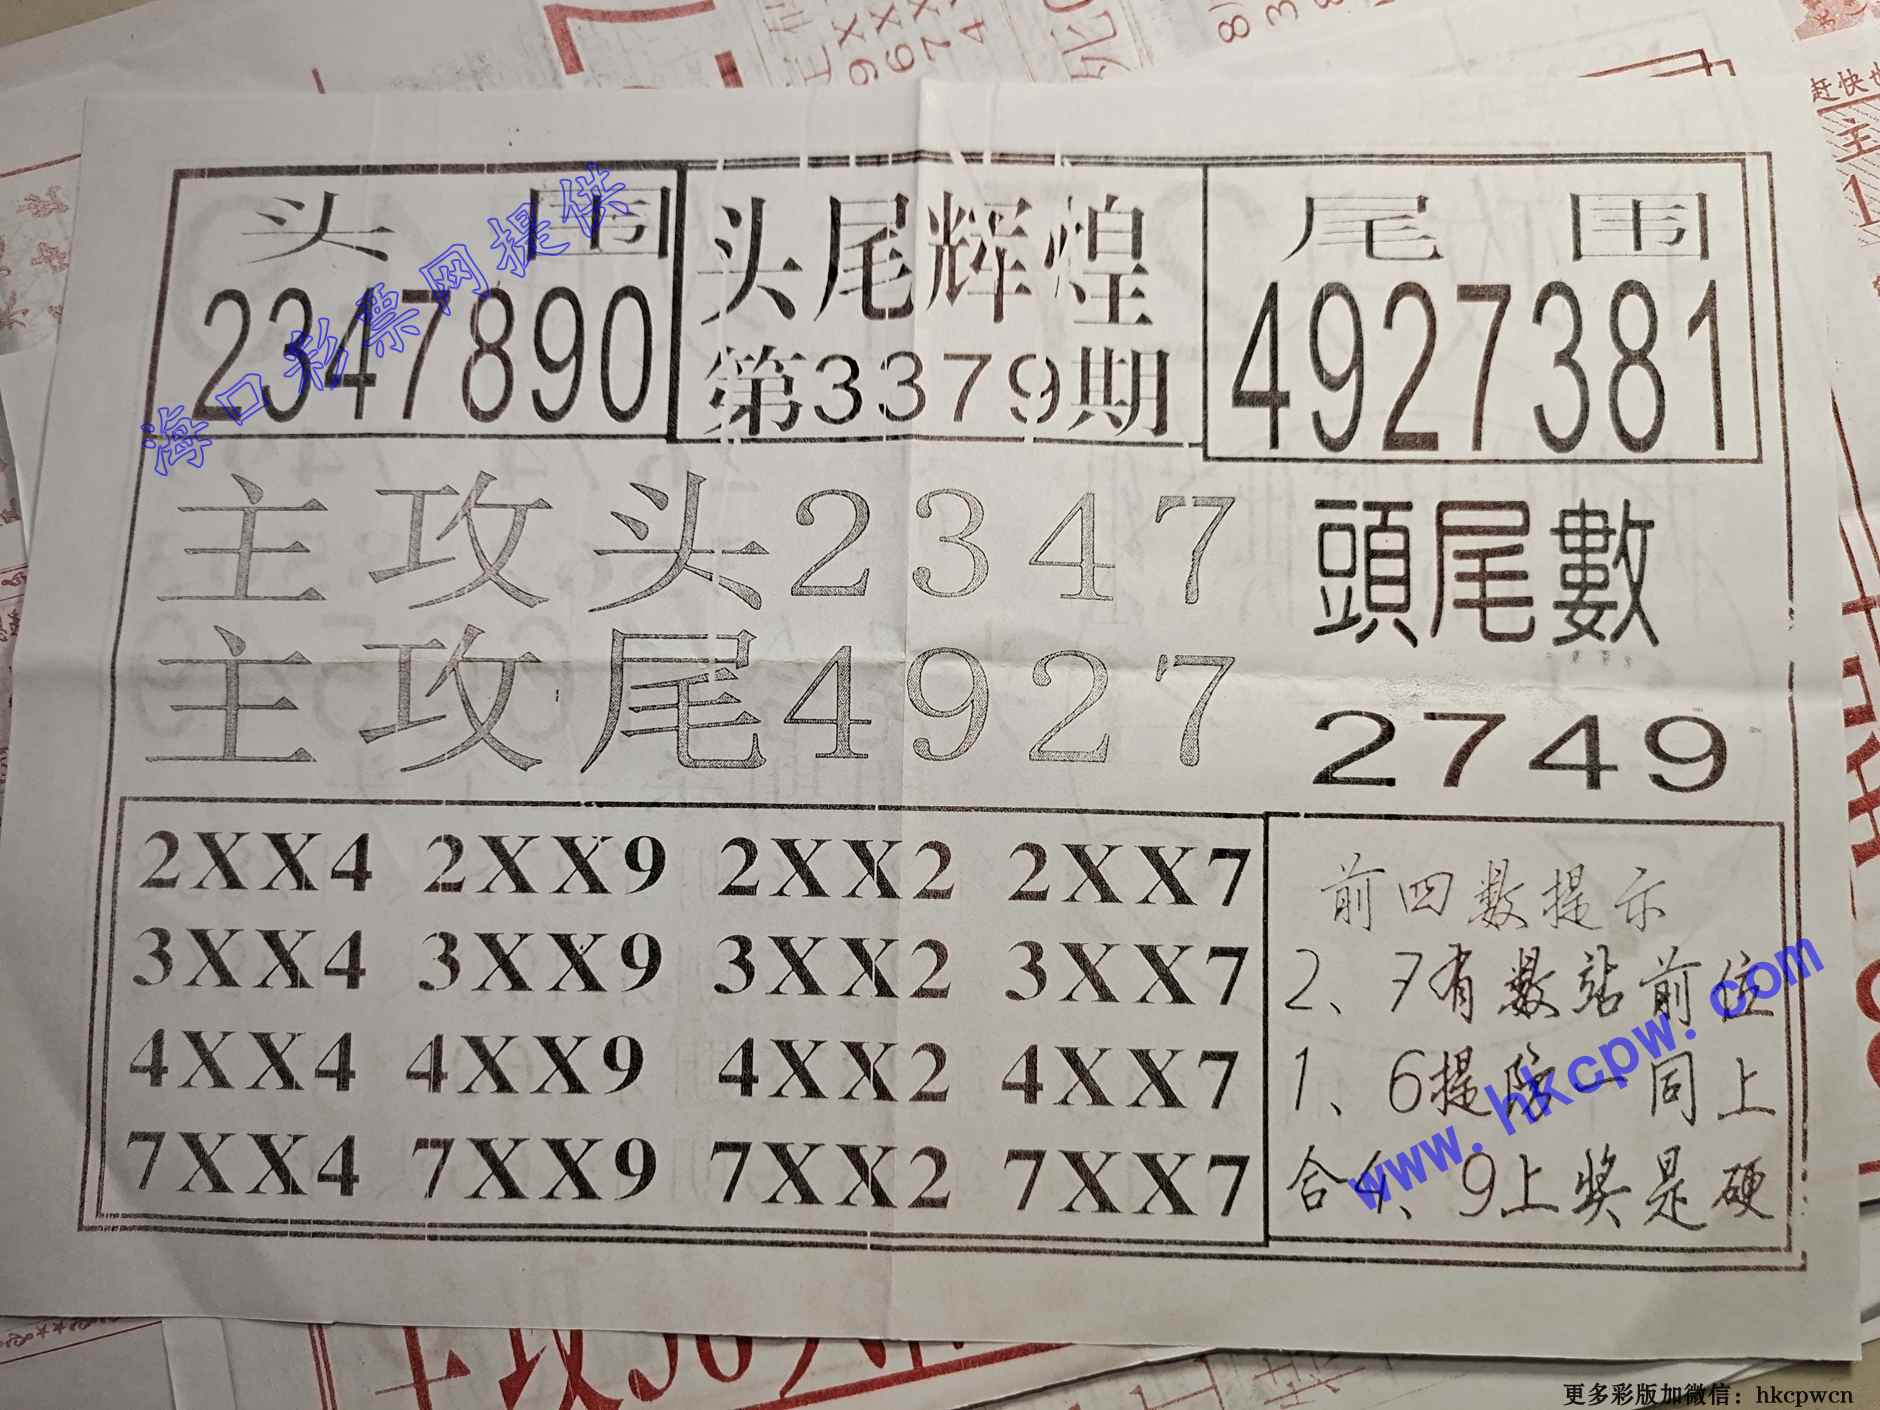 头围
2347890
头尾辉煌
第3379期
尾围
4927381
海口彩票网提供
主攻头2347
主攻尾4927
頭尾數
2749
2XX4 2XX9 2XX2 2XX7
3XX4 3XX9 3XX2 3XX7
4XX4 4XX9 4XX2 4XX7
7XX4 7XX9 7XX2 7XX7
前四数提示
2、7有数站前位
1、6提防一同上
合4、9上奖是硬
www.hkcpw.com
赶快
主
1
更多彩版加微信：hkcpwcn